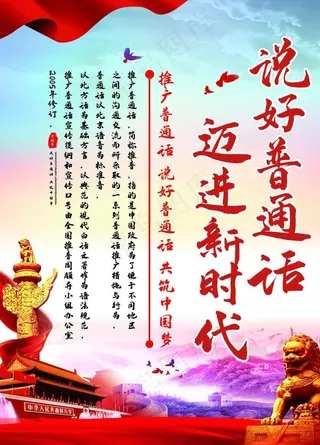 说好普通话
迈进新时代
推广普通话 说好普通话 共筑中国梦
推广普通话，简称推普，指的是中国政府为了便于不同地区
之间的沟通交流而所采取的一系列普通话推广措施与行为。
普通话以北京语音为标准音，
以北方话为基础方言，以典范的现代白话文著作为语法规范。
推广普通话宣传提纲和宣传口号由全国推普周领导小组办公室
2005年修订。
中华人民共和国万岁